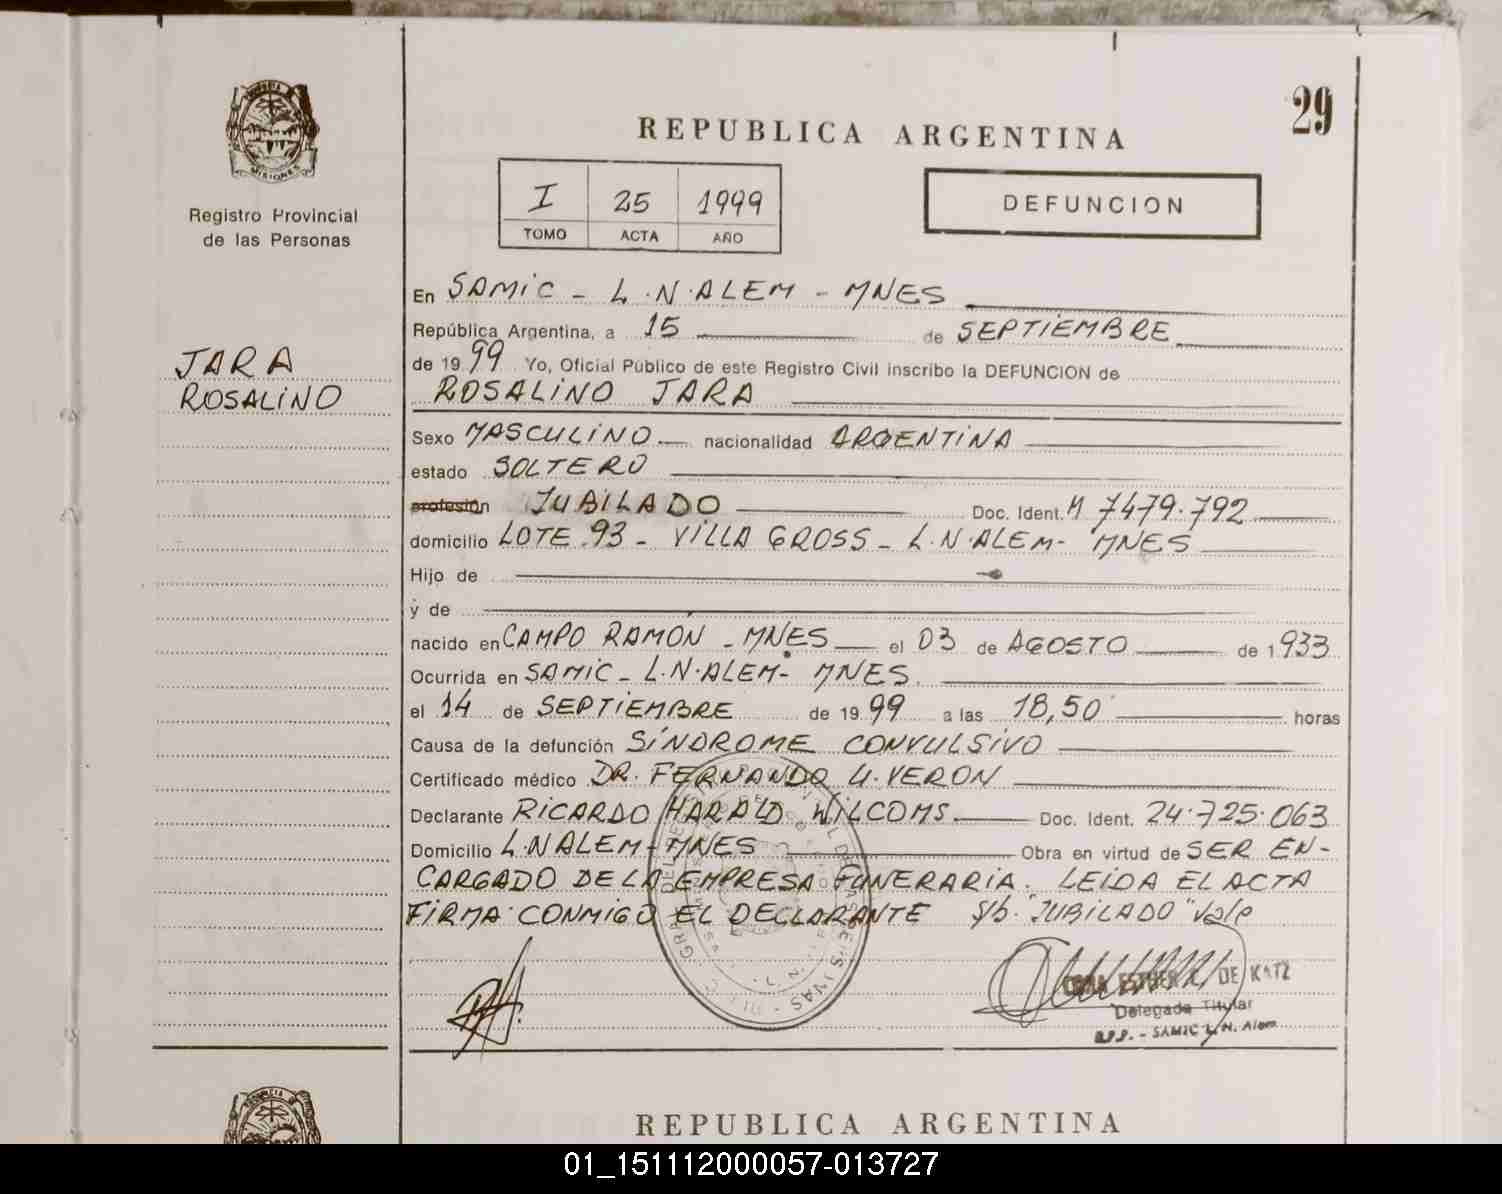 29
REPUBLICA ARGENTINA
PROVINCIA DE
MISIONES
Registro Provincial
de las Personas
I 25 1999
TOMO ACTA AÑO
DEFUNCION
JARA
ROSALINO
En SAMIC - L.N.ALEM - MNES
República Argentina, a 15 de SEPTIEMBRE
de 1999 Yo, Oficial Público de este Registro Civil inscribo la DEFUNCION de
ROSALINO JARA
Sexo MASCULINO nacionalidad ARGENTINA
estado SOLTERO
profesión JUBILADO Doc. Ident. M 7479.792
domicilio LOTE 93 - VILLA GROSS - L.N.ALEM - MNES
Hijo de
y de
nacido en CAMPO RAMON - MNES el 03 de AGOSTO de 1933
Ocurrida en SAMIC - L.N.ALEM - MNES.
el 14 de SEPTIEMBRE de 1999 a las 18,50 horas
Causa de la defunción SÍNDROME CONVULSIVO
Certificado médico DR. FERNANDO U. VERON
Declarante RICARDO HARALD WILCOMS Doc. Ident. 24.725.063
Domicilio L.N ALEM - MNES Obra en virtud de SER EN-
CARGADO DE LA EMPRESA FUNERARIA. LEIDA EL ACTA
FIRMA CONMIGO EL DECLARANTE s/b. "JUBILADO" Vale
ESTHER DE KATZ
Delegada Titular
R.P.P. - SAMIC L.N. Alem
REPUBLICA ARGENTINA
01_151112000057-013727